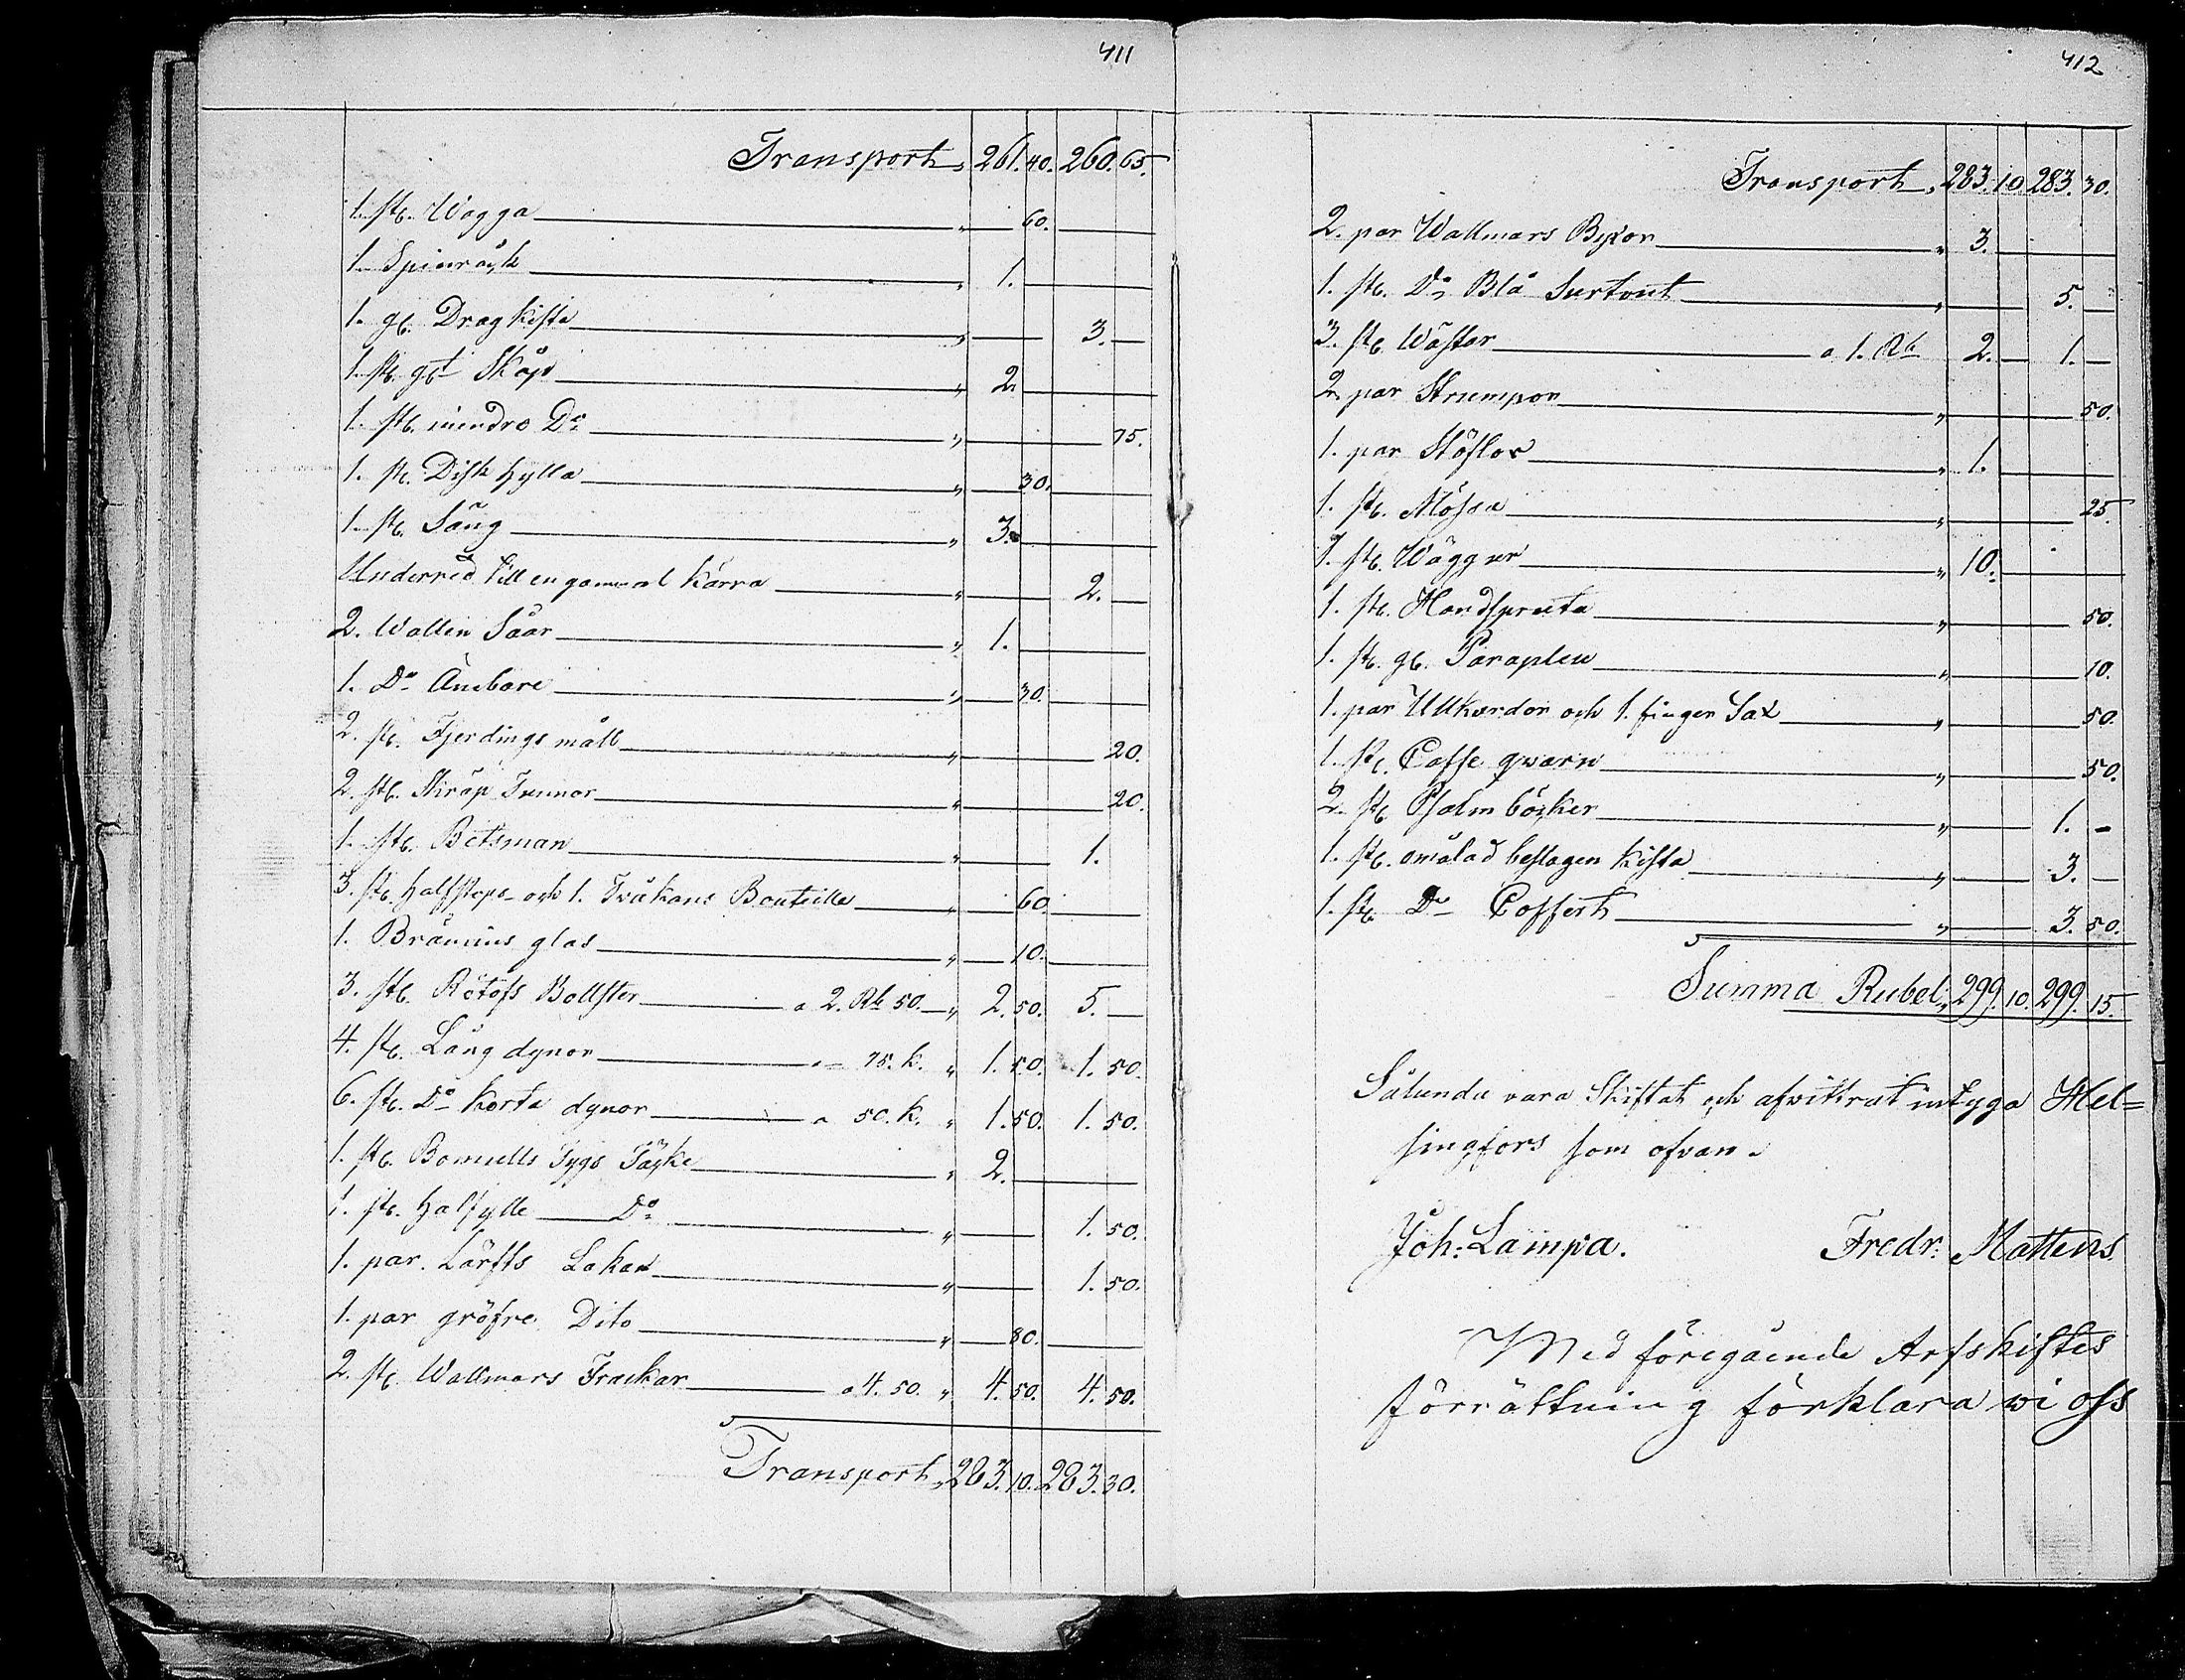 411
Transport, 261. 40. 260. 65.
1. st. Wagga " 60.
1. Spinråck " 1.
1. gl. Dragkista " 3.
1. st. glt Skåp " 2.
1. st. mindre Do " 75.
1. st. Disk hylla " 30.
1. st. Säng " 3.
Underred till en gammal Kärra " 2.
2. Watten Såar " 1.
1. Do Ämbare " 30.
2. st. Fjerdings mått " 20.
2. st. Skräp Tunnor " 20.
1. st. Betsman " 1.
3. st. halfstops- och 1. Twåkans Bouteille " 60.
1. Brännvins glas " 10.
3. st. Bolster a 2. Rb 50. " 2. 50. 5.
4. st. Långdynor a 75. k. " 1. 50. 1. 50.
6. st. Do Korta dynor a 50. k. " 1. 50. 1. 50.
1. st. Bomulls Tygs Täcke " 2.
1. st. halfylle Do " 1. 50.
1. par. Lärfts Lakan " 1. 50.
1. par gröfre Dito " 80.
2. st. Wallmars Frackar a 4. 50. " 4. 50. 4. 50.
Transport, 283. 10. 283. 30.
412
Transport, 283. 10. 283. 30.
2. par Wallmars Byxor " 3.
1. st. Do Blå Surtout " 5.
3. st. Wästar a 1. Rb 2. 1.
2. par Strumpor " 50.
1. par Stöflor " 1.
1. st. Mössa " 25.
1. st. Wäggur " 10.
1. st. Handspruta " 50.
1. st. gl. Paraplu " 10.
1. par Ullkardor och 1. finger Sax " 50.
1. st. Caffe qwarn " 50.
2. st. Psalm böcker " 1. -
1. st. omålad beslagen Kista " 3.
1. st. Do Coffert " 3. 50.
Summa Rubel, 299. 10. 299. 15.
Sålunda vara Skiftat och afwittrat intyga Hel=
singfors som ofvan.
Joh: Lampa. Fredr: Mattens
Med föregående Arfskiftes
förrättning förklara wi oss